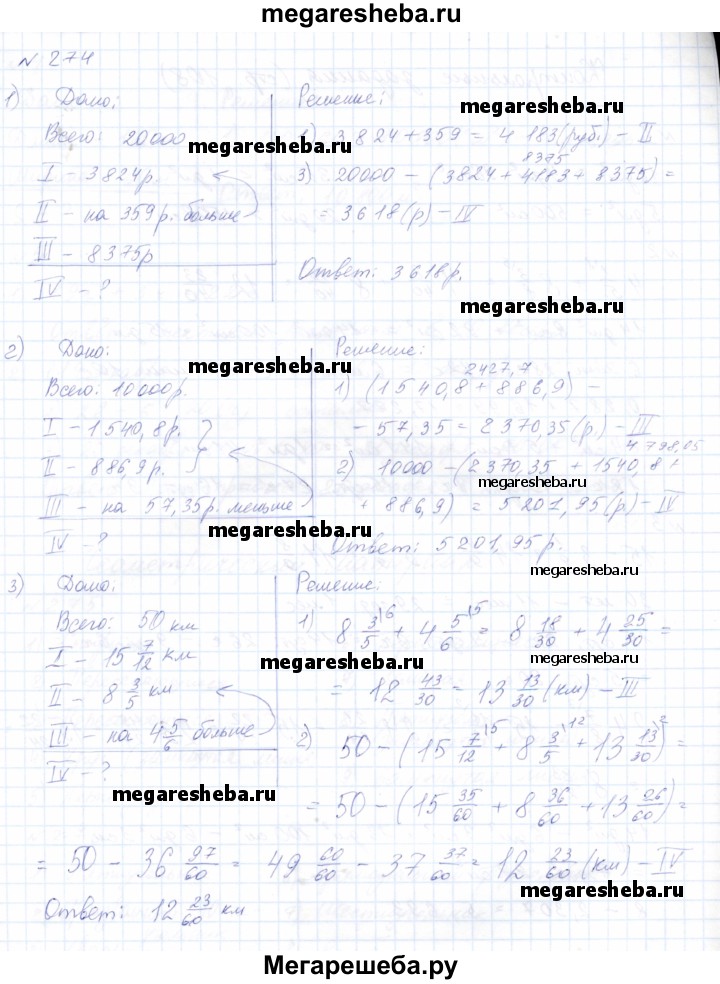 megaresheba.ru
№ 274
1) Дано:
Всего: 20000
I – 3824р.
II – на 359р. больше
III – 8375р
IV – ?
Решение:
megaresheba.ru
megaresheba.ru
1) 3824+359 = 4 183(руб.) – II
8375
3) 20000 – (3824+4183+8375) =
= 3618(р) – IV
Ответ: 3618р.
megaresheba.ru
2) Дано:
megaresheba.ru
Всего: 10000р.
I – 1540,8р.
II – 886,9р.
III – на 57,35р. меньше
IV – ?
Решение:
2427,7
1) (1540,8+886,9) –
– 57,35 = 2370,35(р) – III
4798,05
2) 10000 – (2370,35 + 1540,8+
megaresheba.ru
+ 886,9) = 5201,95(р) – IV
megaresheba.ru
Ответ: 5201,95р.
megaresheba.ru
3) Дано:
Всего: 50 км
I – 15 7/12 км
II – 8 3/5 км
III – на 4 5/6 больше
IV – ?
Решение:
1) 8 3/5 ⁶ + 4 5/6 ⁵ = 8 18/30 + 4 25/30 =
megaresheba.ru
megaresheba.ru
= 12 43/30 = 13 13/30 (км) – III
2) 50 – (15 7/12 ⁵ + 8 3/5 ¹² + 13 13/30 ²) =
megaresheba.ru
megaresheba.ru
= 50 – (15 35/60 + 8 36/60 + 13 26/60) =
= 50 – 36 97/60 = 49 60/60 – 37 37/60 = 12 23/60 (км) – IV
megaresheba.ru
Ответ: 12 23/60 км
Мегарешеба.ру